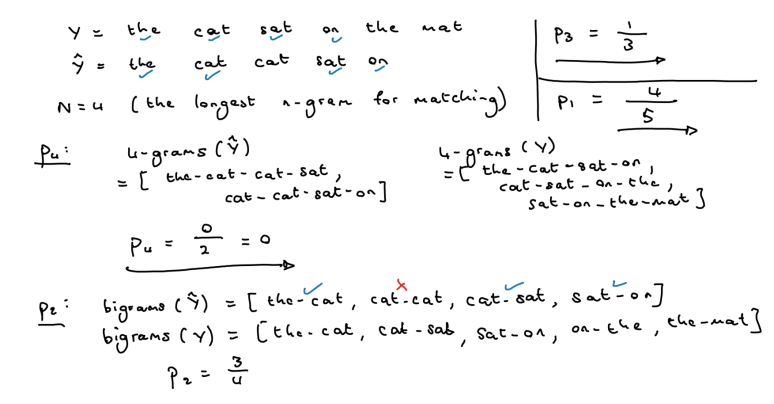 Y = the cat sat on the mat
Ŷ = the cat cat sat on
N = 4 (the longest n-gram for matching)
P3 = 1/3
P1 = 4/5
P4: 4-grams (Ŷ)
= [ the-cat-cat-sat,
cat-cat-sat-on ]
4-grams (Y)
= [ the-cat-sat-on,
cat-sat-on-the,
sat-on-the-mat ]
P4 = 0/2 = 0
P2: bigrams (Ŷ) = [ the-cat, cat-cat, cat-sat, sat-on ]
bigrams (Y) = [ the-cat, cat-sat, sat-on, on-the, the-mat ]
P2 = 3/4